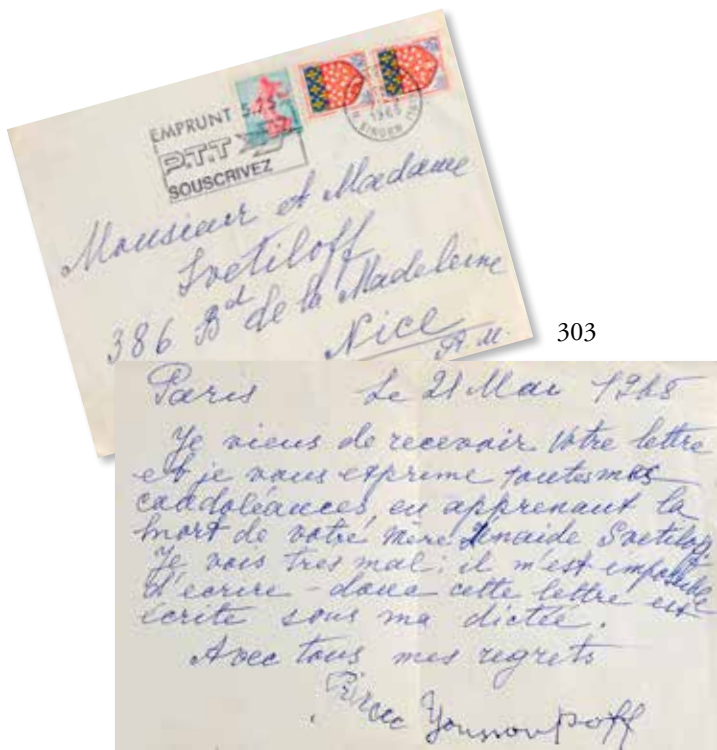 EMPRUNT 5,75
P.T.T
SOUSCRIVEZ
1965
SINGER
Monsieur et Madame
Svetiloff
386 Bd de la Madeleine
Nice
A.M.
303
Paris Le 21 Mai 1965
Je viens de recevoir Votre lettre
et je vous exprime toutes mes
condoléances en apprenant la
mort de votre mère Zinaide Svetiloff.
Je vois tres mal: il m'est impossible
d'ecrire - donc cette lettre est
écrite sous ma dictée.
Avec tous mes regrets
Prince Youssoupoff